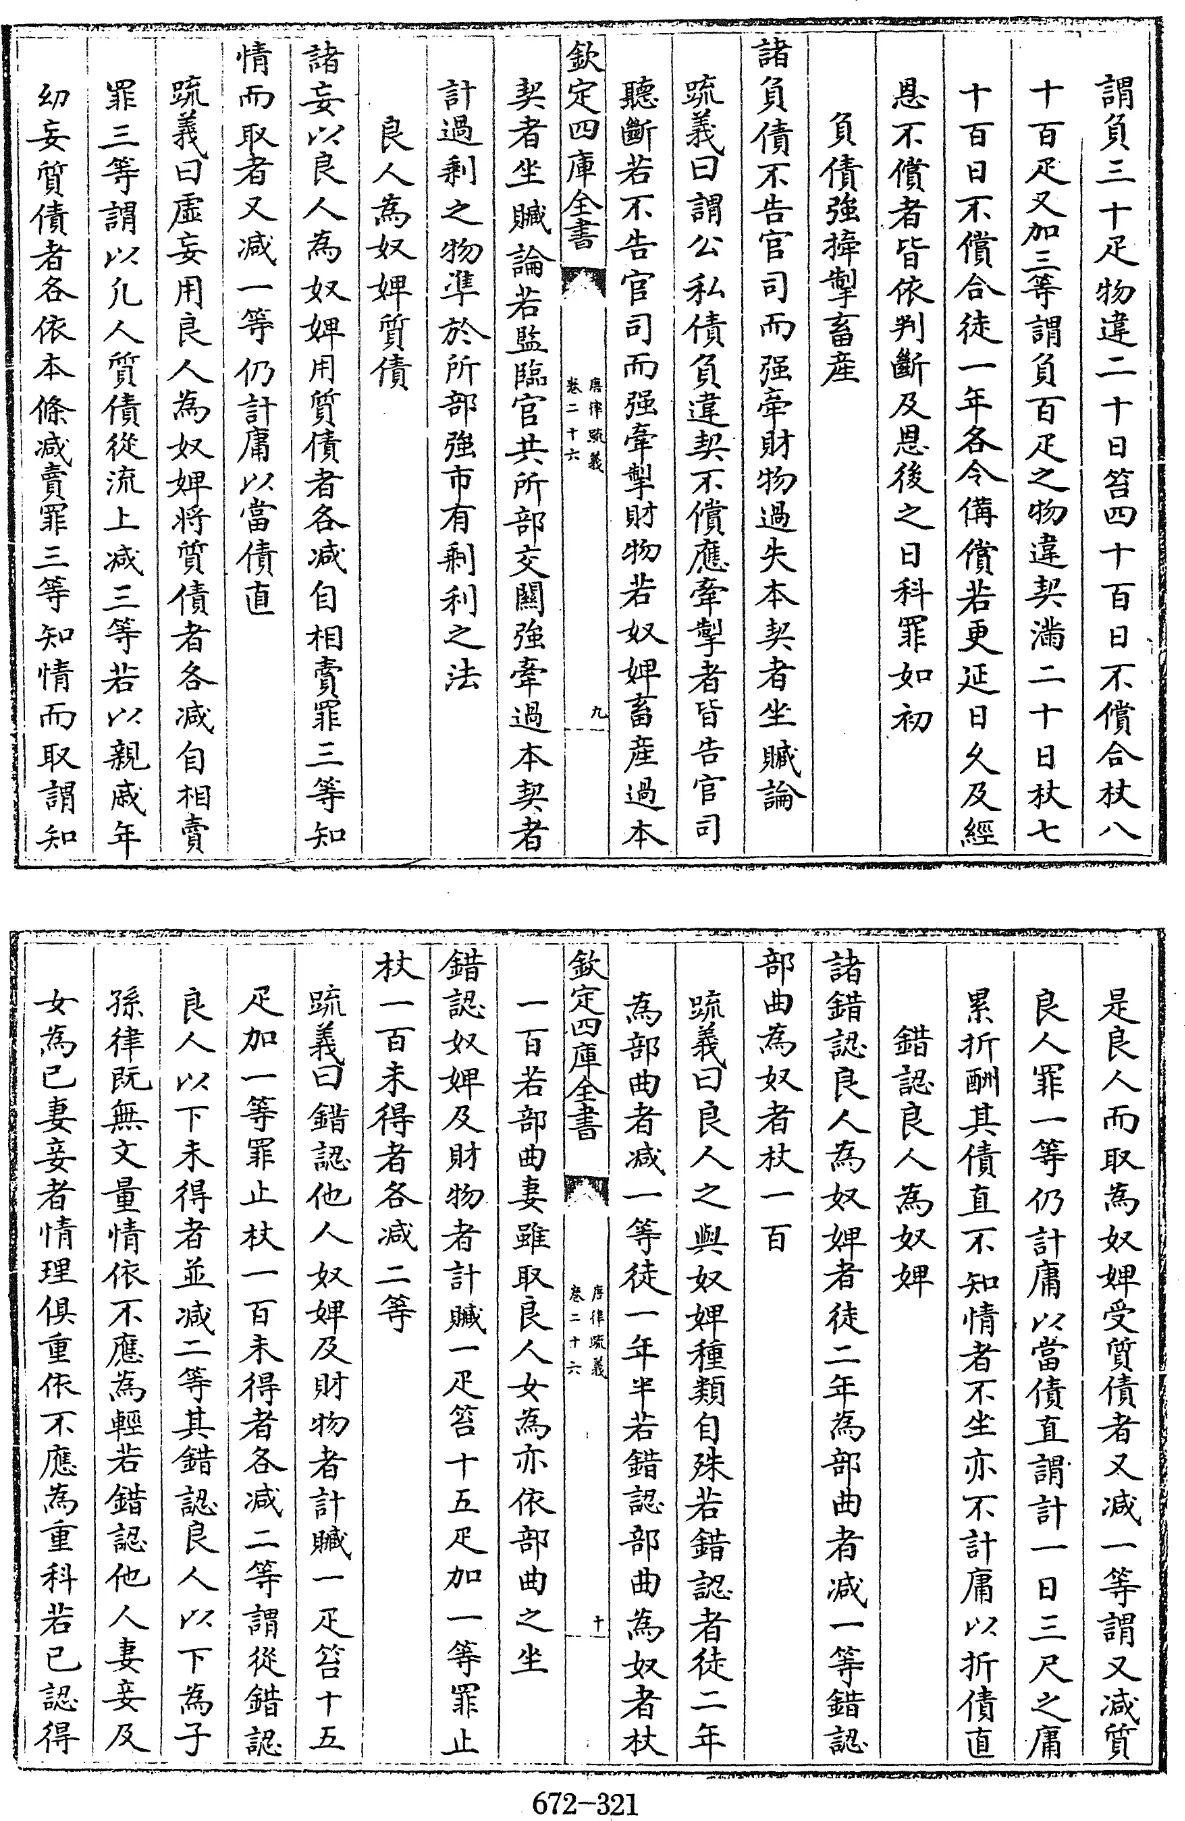 謂負三十疋物違二十日笞四十百日不償合杖八
十百疋又加三等謂負百疋之物違契滿二十日杖七
十百日不償合徒一年各令備償若更延日久及經
恩不償者皆依判斷及恩後之日科罪如初
負債強牽掣畜産
諸負債不告官司而强牽財物過失本契者坐贓論
疏義曰謂公私債負違契不償應牽掣者皆告官司
聽斷若不告官司而强牽掣財物若奴婢畜産過本
欽定四庫全書
唐律疏義
卷二十六
九
契者坐贓論若監臨官共所部交關強牽過本契者
計過剩之物準於所部強市有剩利之法
良人為奴婢質債
諸妄以良人為奴婢用質債者各减自相賣罪三等知
情而取者又减一等仍計庸以當債直
疏義曰虛妄用良人為奴婢將質債者各减自相賣
罪三等謂以凡人質債從流上减三等若以親戚年
幼妄質債者各依本條减賣罪三等知情而取謂知
是良人而取為奴婢受質債者又减一等謂又减質
良人罪一等仍計庸以當債直謂計一日三尺之庸
累折酬其債直不知情者不坐亦不計庸以折債直
錯認良人為奴婢
諸錯認良人為奴婢者徒二年為部曲者减一等錯認
部曲為奴者杖一百
疏義曰良人之與奴婢種類自殊若錯認者徒二年
為部曲者减一等徒一年半若錯認部曲為奴者杖
欽定四庫全書
唐律疏義
卷二十六
十
一百若部曲妻雖取良人女為亦依部曲之坐
錯認奴婢及財物者計贓一疋笞十五疋加一等罪止
杖一百未得者各减二等
疏義曰錯認他人奴婢及財物者計贓一疋笞十五
疋加一等罪止杖一百未得者各减二等謂從錯認
良人以下未得者並减二等其錯認良人以下為子
孫律既無文量情依不應為輕若錯認他人妻妾及
女為己妻妾者情理俱重依不應為重科若已認得
672-321